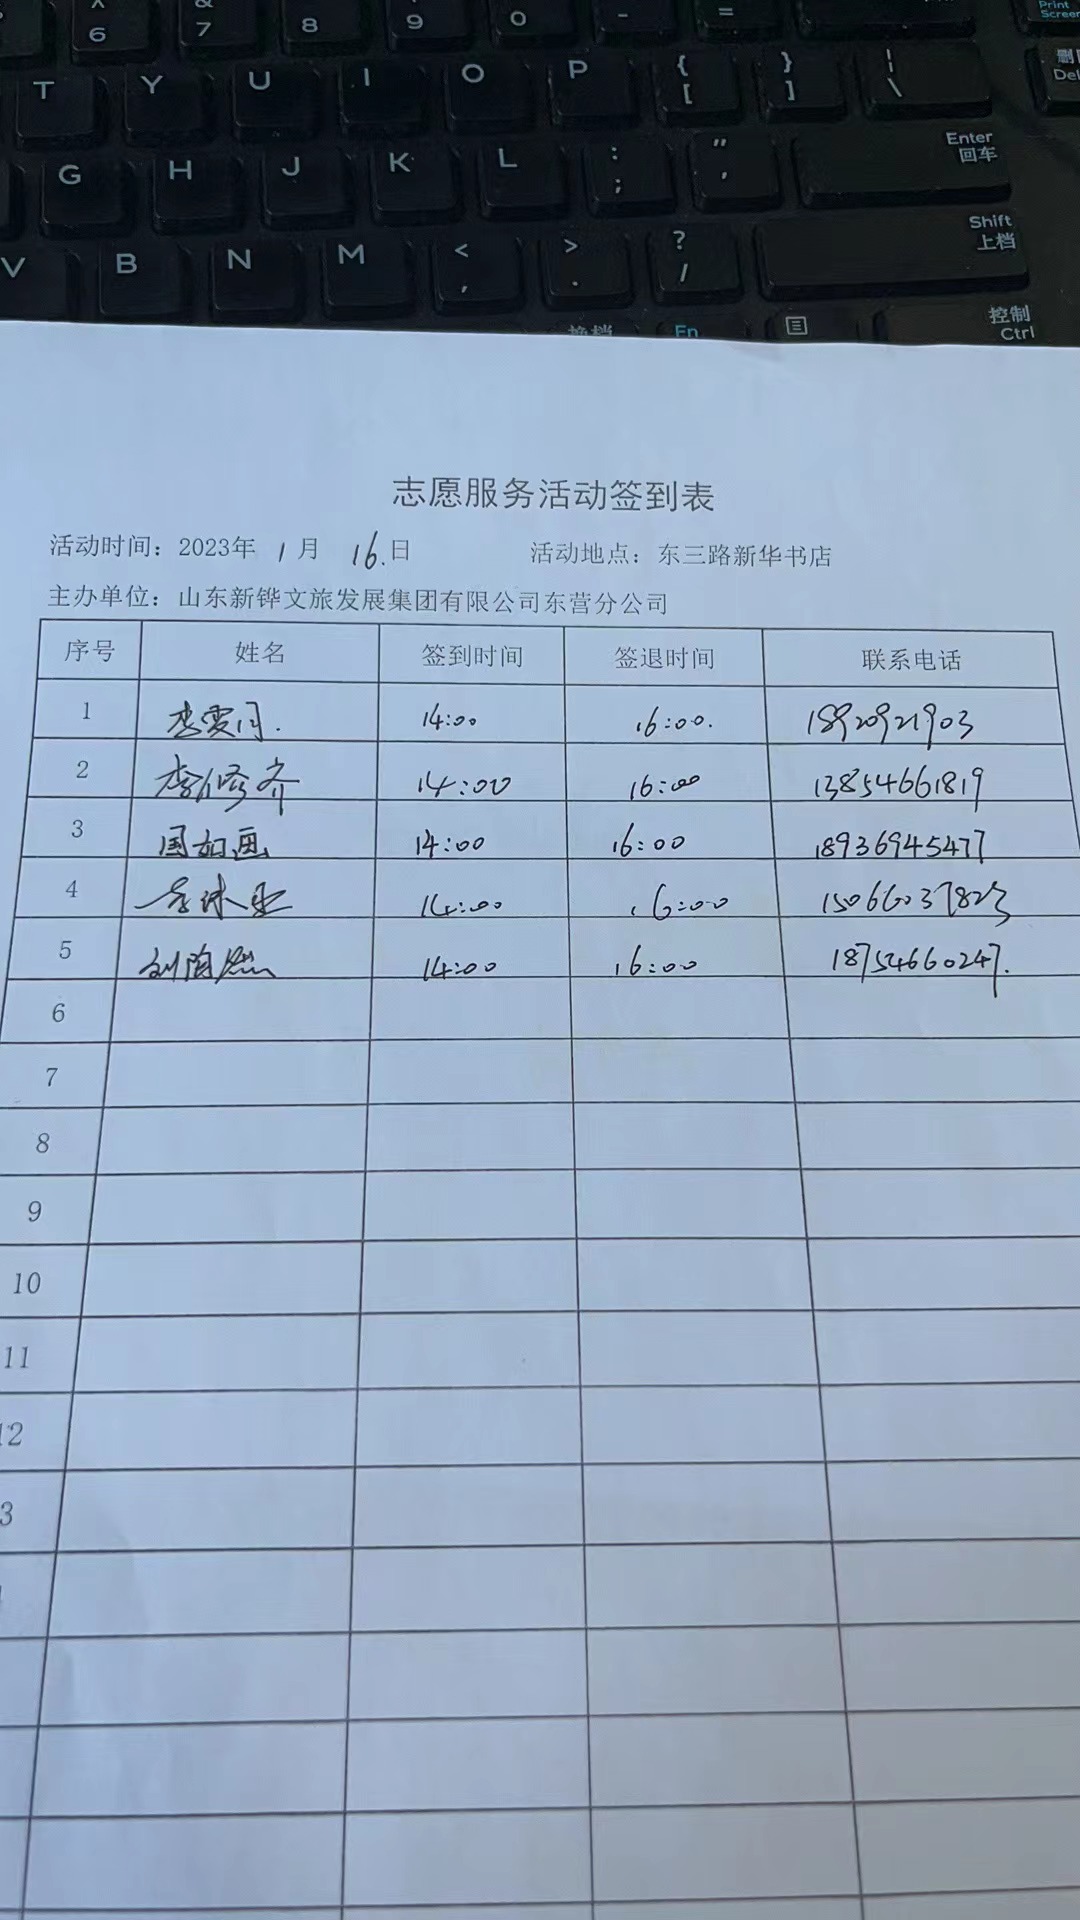 ^ & Print Screen
6 7 8 9 0 - =
T Y U I O P { [ } ] ¦ \ 删 Del
G H J K L : ; " ' Enter 回车
V B N M < , > . ? / Shift 上档
换档 Fn 控制 Ctrl
志愿服务活动签到表
活动时间：2023年 1月 16.日 活动地点：东三路新华书店
主办单位：山东新铧文旅发展集团有限公司东营分公司
序号 姓名 签到时间 签退时间 联系电话
1 李雯月. 14:00 16:00. 18920921903
2 李修齐 14:00 16:00 13854661819
3 国如画 14:00 16:00 18936945477
4 14:00 16:00 15066037823
5 刘陶然 14:00 16:00 18754660247.
6
7
8
9
10
11
12
3